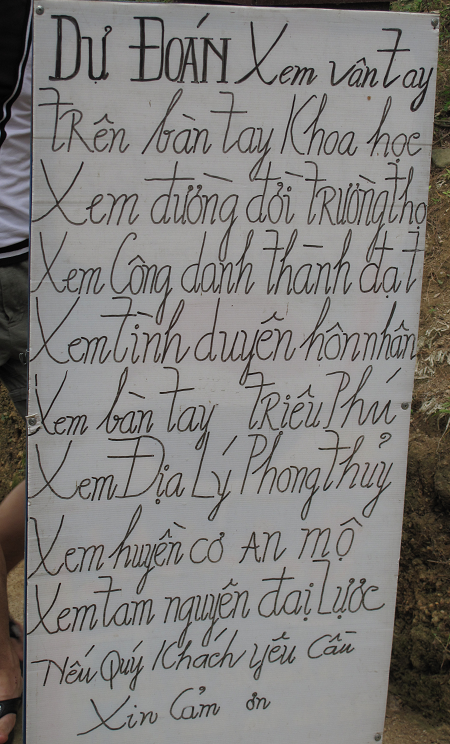 DỰ ĐOÁN Xem vân tay
trên bàn tay Khoa học
Xem đường đời trường thọ
Xem Công danh thành đạt
Xem tình duyên hôn nhân
Xem bàn tay triệu Phú
Xem Địa Lý Phong thủy
Xem huyền cơ AN MỘ
Xem tam nguyên đại lược
Nếu Quý Khách yêu Cầu
Xin Cảm ơn